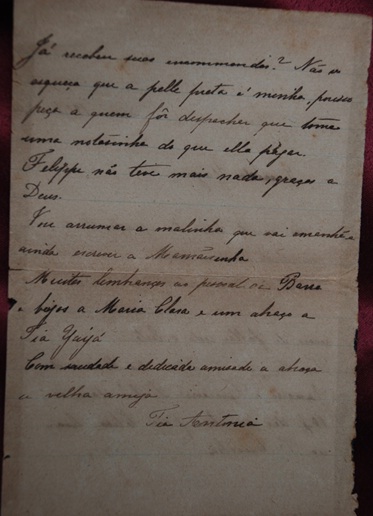 Já recebeu suas encommendas? Não se
esqueça que a pelle preta é minha, por isso
peça a quem fôr despachar que tome
uma notasinha do que ella pagar.
Felippe não teve mais nada, graças a
Deus.
Vou arrumar a malinha que vai amanhã e
ainda escrever a Mamãesinha
Muitas lembranças ao pessoal da Barra
e beijos a Maria Clara e um abraço a
Tia Yayá
Com saudade e dedicada amisade a abraça
a velha amiga
Tia Antonia